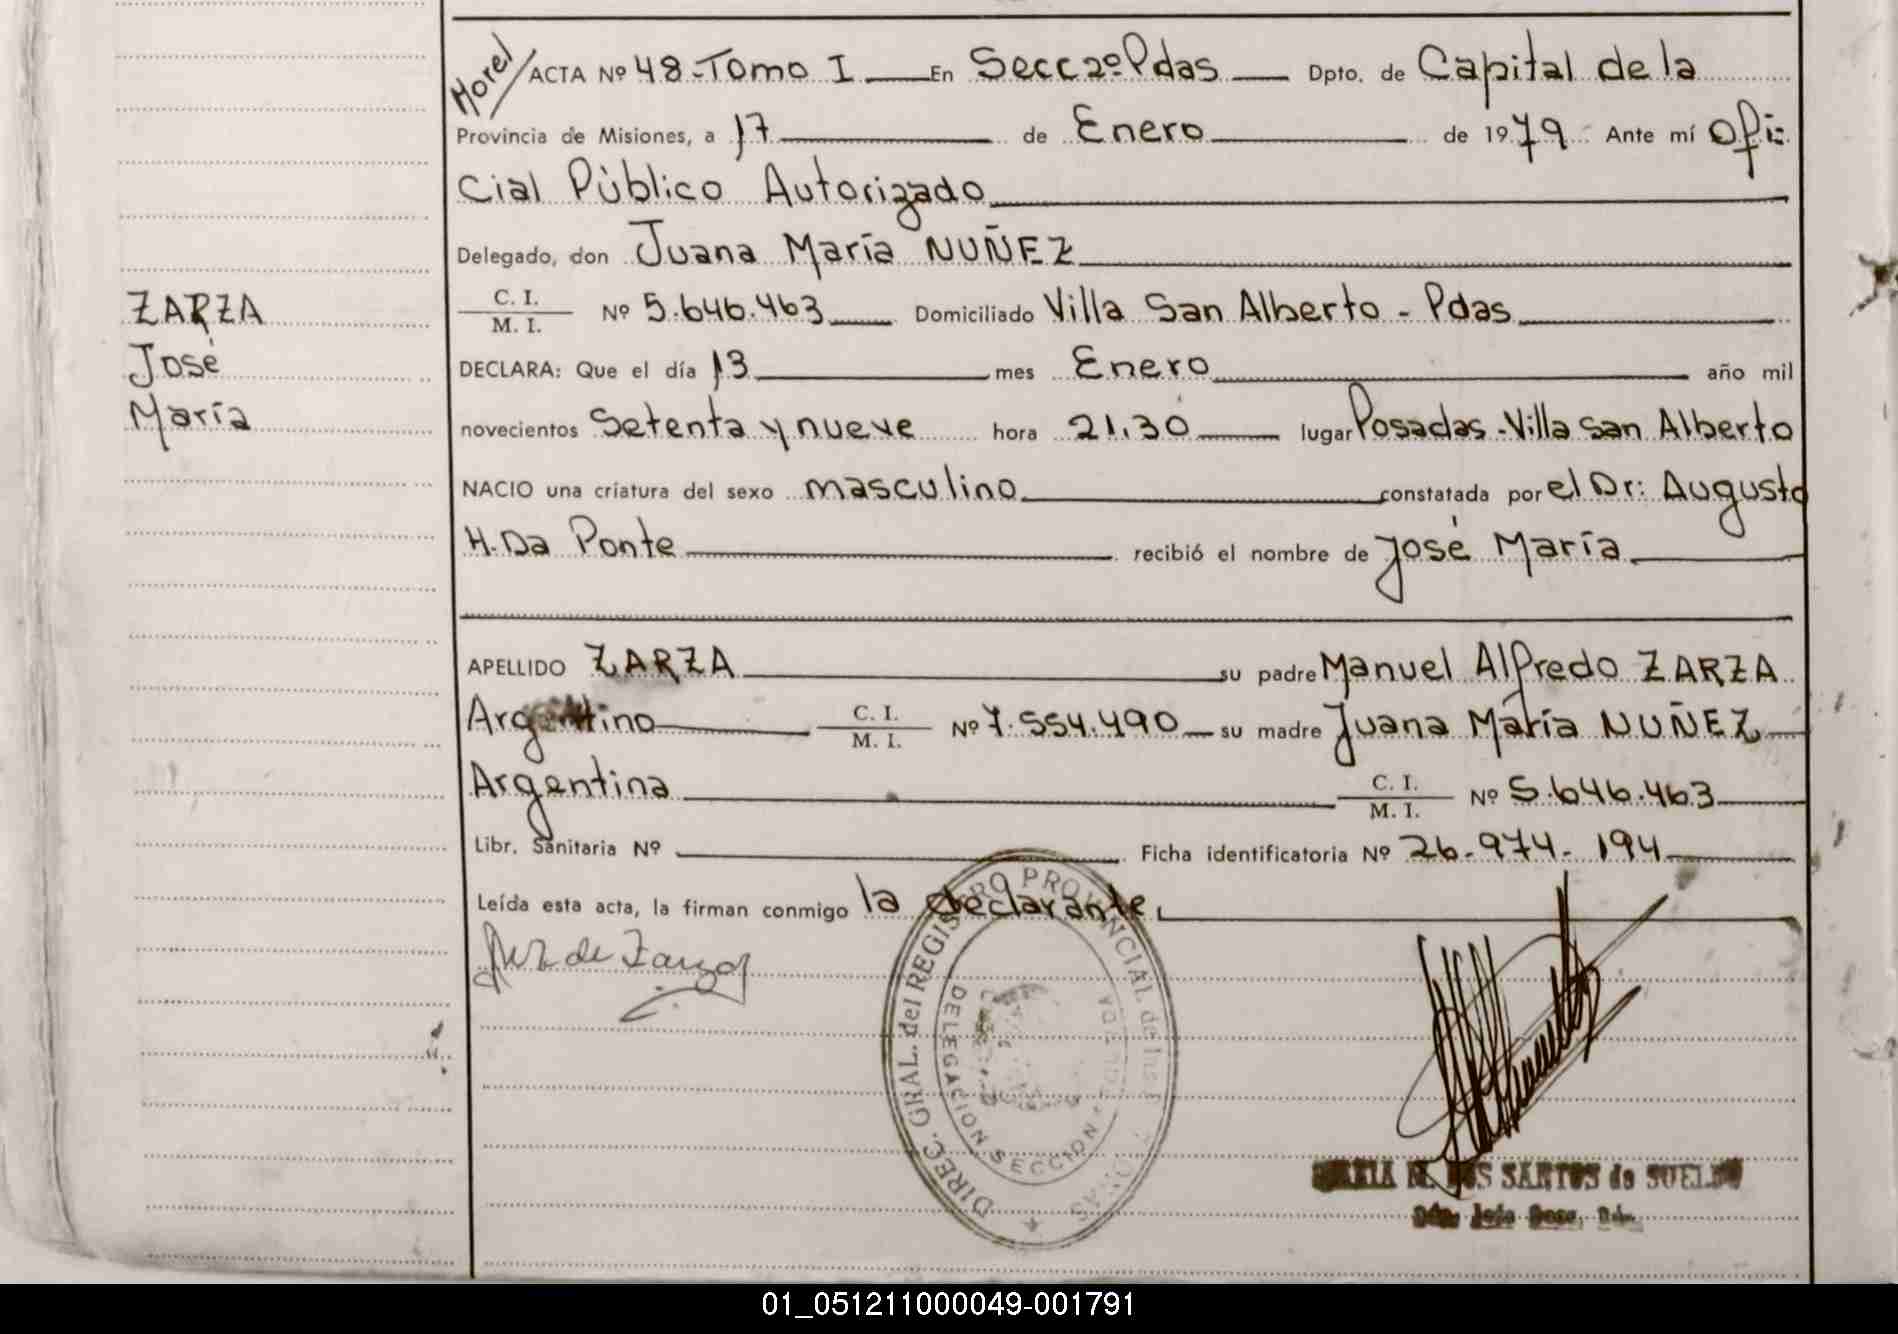 Morel/ ACTA Nº 48-Tomo I En Secc 2º Pdas Dpto. de Capital de la
Provincia de Misiones, a 17 de Enero de 1979 Ante mí Ofi-
cial Público Autorizado
Delegado, don Juana María NUÑEZ
C. I.
M. I.
Nº 5.646.463 Domiciliado Villa San Alberto - Pdas
ZARZA
José
María
DECLARA: Que el día 13 mes Enero año mil
novecientos Setenta y nueve hora 21.30 lugar Posadas - Villa San Alberto
NACIO una criatura del sexo masculino constatada por el Dr: Augusto
H. Da Ponte recibió el nombre de José María
APELLIDO ZARZA su padre Manuel Alfredo ZARZA
Argentino C. I. M. I. Nº 7.554.490 su madre Juana María NUÑEZ
Argentina C. I. M. I. Nº 5.646.463
Libr. Sanitaria Nº Ficha identificatoria Nº 26-974-194
Leída esta acta, la firman conmigo la declarante.
de Zarza
DIREC. GRAL. del REGISTRO PROVINCIAL de las
DELEGACION SECCION
DOS SANTOS de SUELDO
01_051211000049-001791